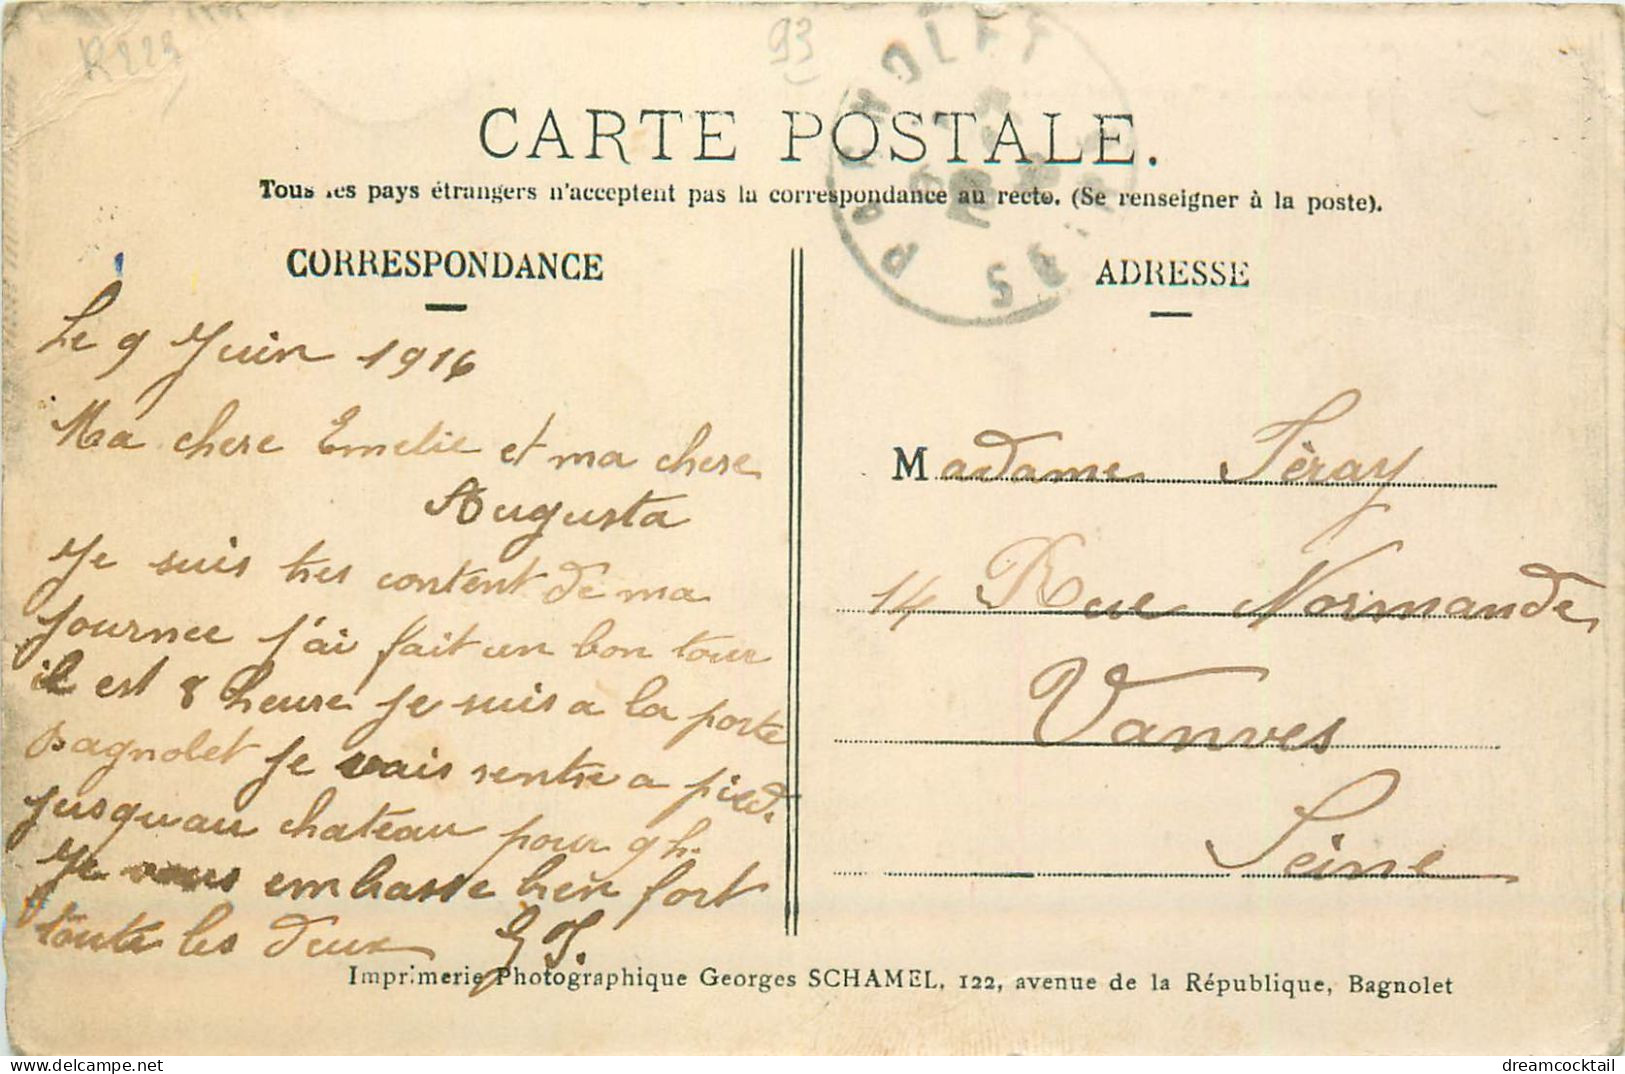 R223
93
BAGNOLET
SEINE
CARTE POSTALE.
Tous les pays étrangers n'acceptent pas la correspondance au recto. (Se renseigner à la poste).
CORRESPONDANCE
Le 9 Juin 1916
Ma chere Emelie et ma chere
Augusta
Je suis tres content de ma
journee j'ai fait un bon tour
il est 8 heure je suis a la porte
Bagnolet je vais rentre a pied.
jusquau chateau pour 9 h.
Je vous embasse bien fort
toute les deux G F.
ADRESSE
Madame Féray
14 Rue Normande
Vanves
Seine
Imprimerie Photographique Georges SCHAMEL, 122, avenue de la République, Bagnolet
dreamcocktail